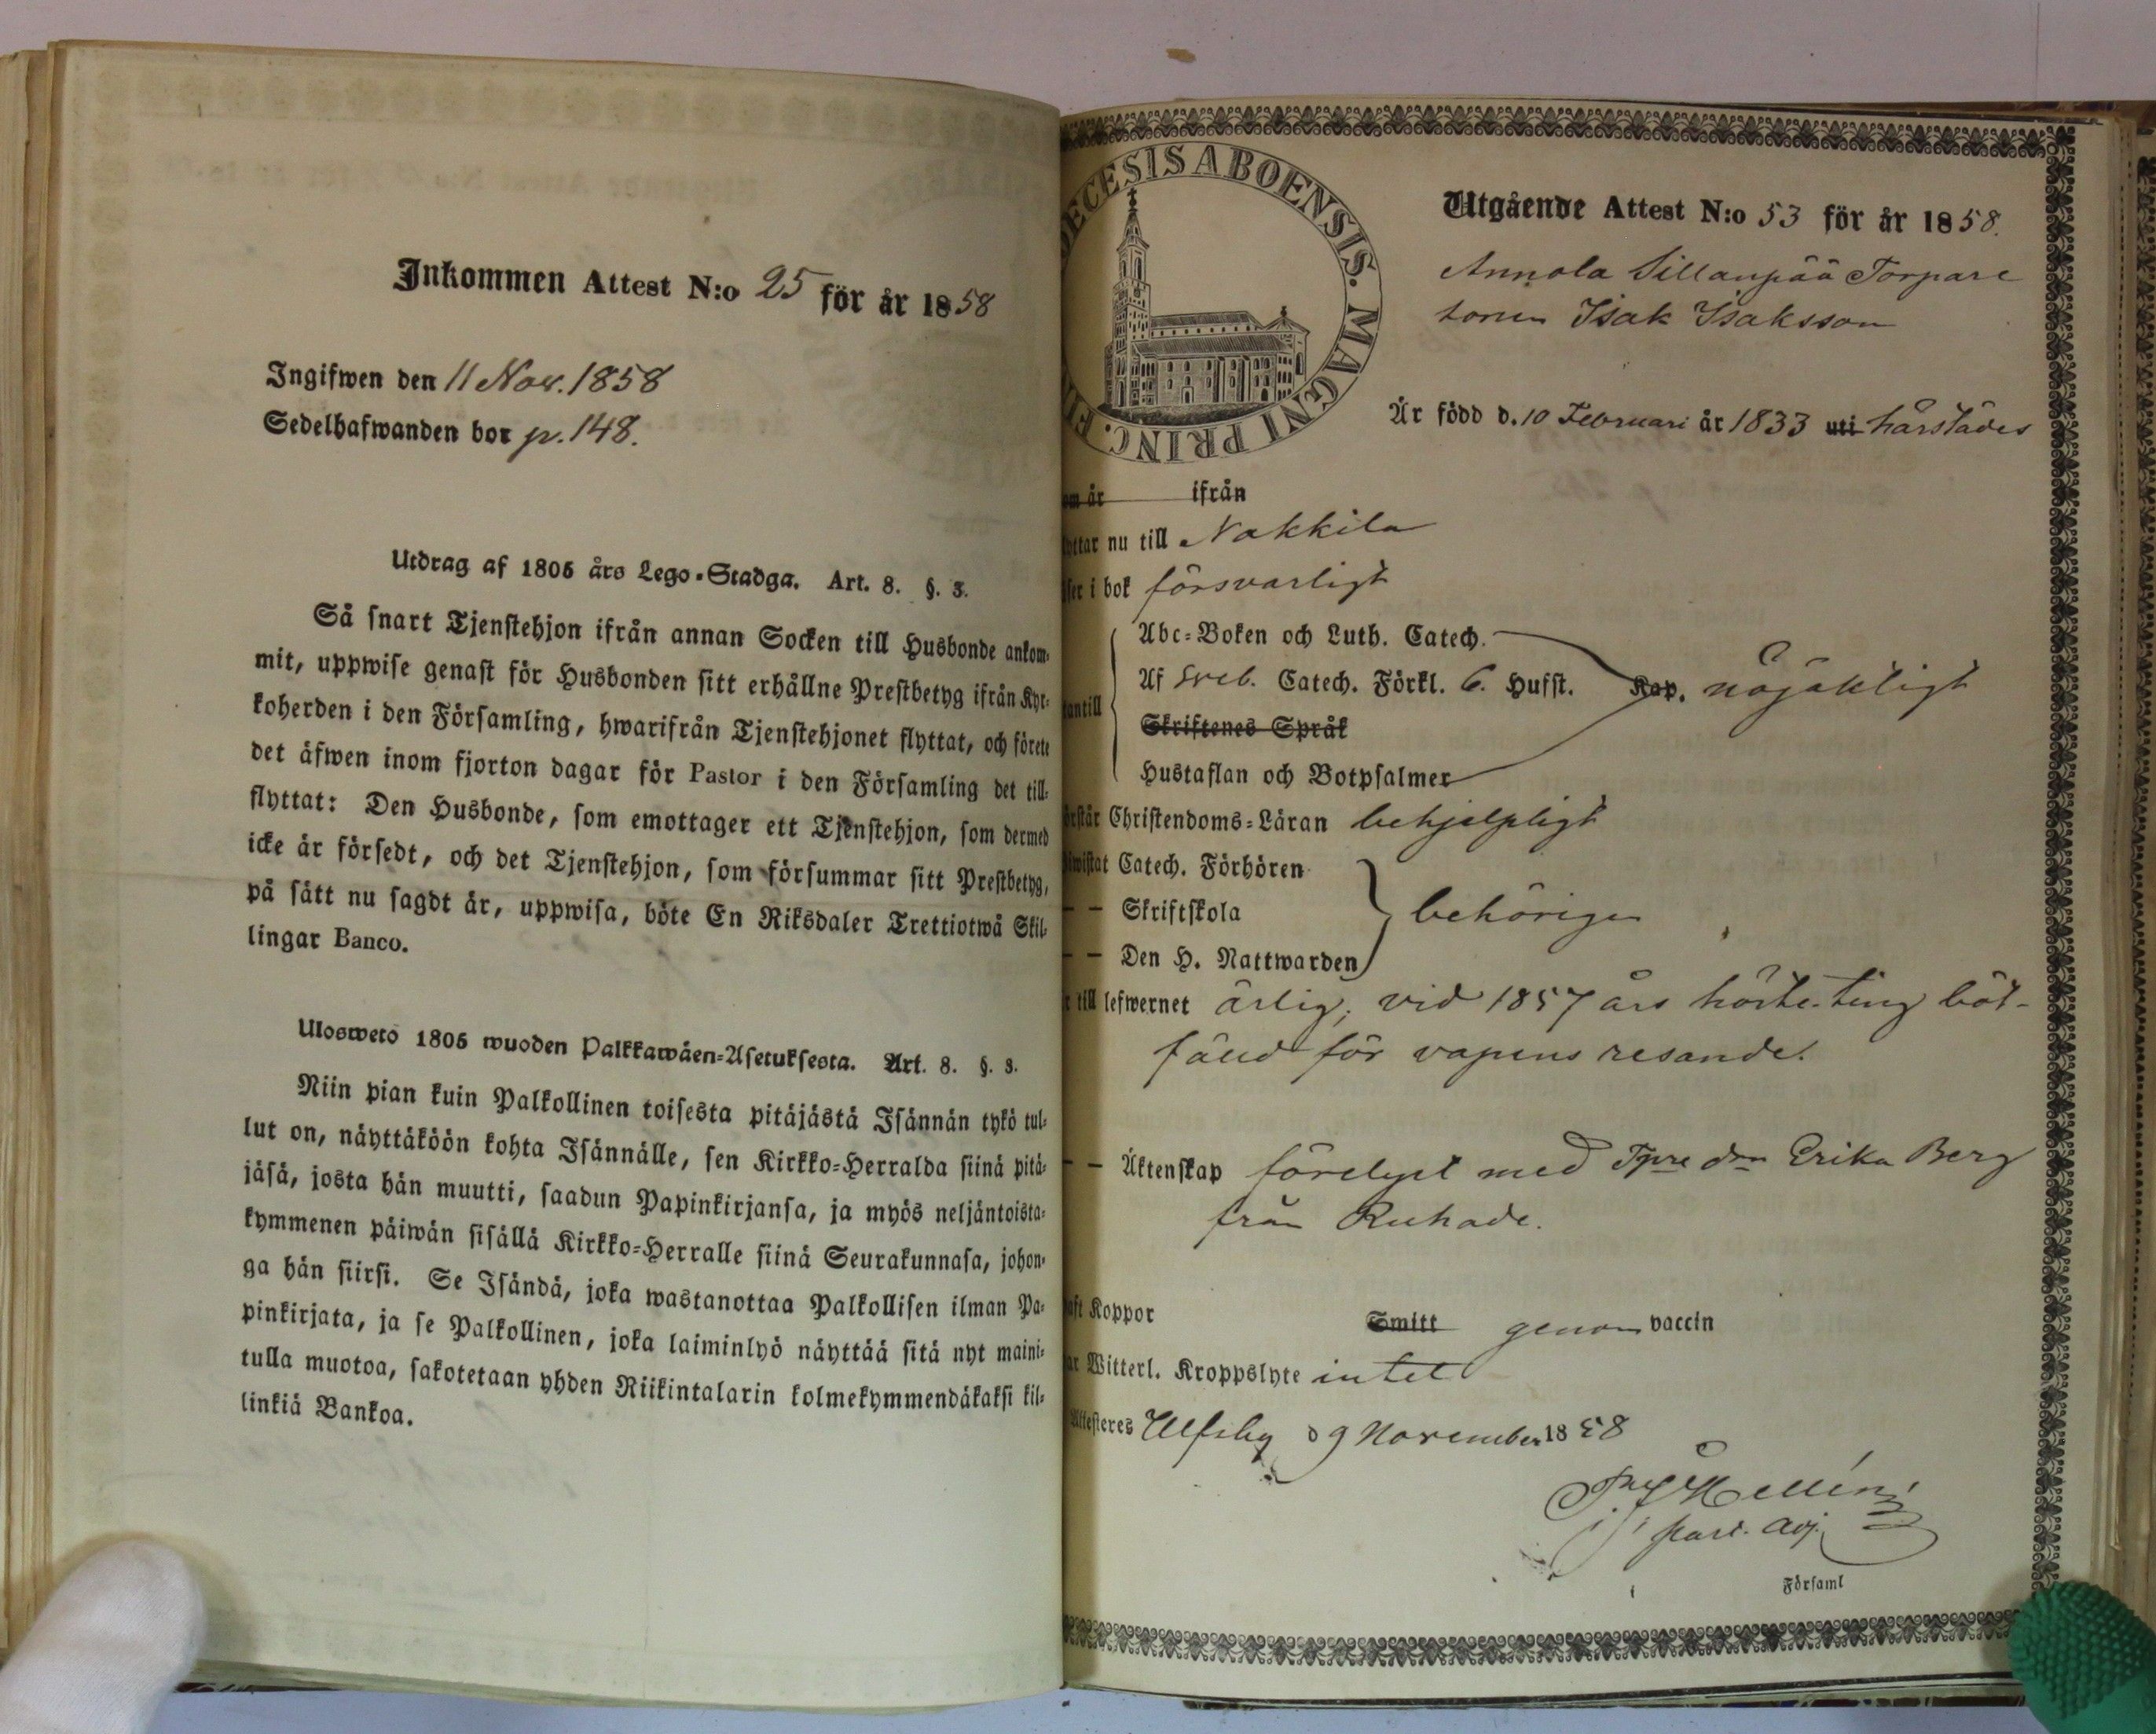 Inkommen Attest N:o 25 för år 1858
Ingifwen den 11 Nov. 1858
Sedelhafwanden bor p. 148.
Utdrag af 1805 års Lego-Stadga. Art. 8. §. 3.
Så snart Tjenstehjon ifrån annan Socken till Husbonde ankom-
mit, uppwise genast för Husbonden sitt erhållne Prestbetyg ifrån Kyr-
koherden i den Församling, hwarifrån Tjenstehjonet flyttat, och förete
det äfwen inom fjorton dagar för Pastor i den Församling det till-
flyttat: Den Husbonde, som emottager ett Tjenstehjon, som dermed
icke är försedt, och det Tjenstehjon, som försummar sitt Prestbetyg,
på sätt nu sagdt är, uppwisa, böte En Riksdaler Trettiotwå Skil-
lingar Banco.
Ulosweto 1805 wuoden Palkkawäen-Asetuksesta. Art. 8. §. 3.
Niin pian kuin Palkollinen toisesta pitäjästä Isännän tykö tul-
lut on, näyttäköön kohta Isännälle, sen Kirkko-Herralda siinä pitä-
jäsä, josta hän muutti, saadun Papinkirjansa, ja myös neljäntoista-
kymmenen päiwän sisällä Kirkko-Herralle siinä Seurakunnasa, johon-
ga hän siirsi. Se Isändä, joka wastanottaa Palkollisen ilman Pa-
pinkirjata, ja se Palkollinen, joka laiminlyö näyttää sitä nyt maini-
tulla muotoa, sakotetaan yhden Riikintalarin kolmekymmendäkaksi kil-
linkiä Bankoa.
DECESIS ABOENSIS. MAGNI PRINC. FI
Utgående Attest N:o 53 för år 1858.
Annola Sillanpää Torpare
sonen Isak Isaksson
Är född d. 10 Februari år 1833 uti härstädes
om år ifrån
yttar nu till Nakkila
ser i bok försvarligt
Abc-Boken och Luth. Catech.
Af Sveb. Catech. Förkl. 6. Hufst. Kap. nöjaktligt
antill
Skriftenes Språk
Hustaflan och Botpsalmer
örstår Christendoms-Läran behjelpligt
iwistat Catech. Förhören
— — Skriftskola behörigen
— — Den H. Nattwarden
r till lefwernet ärlig; vid 1857 års höste-ting böt-
fälld för vapens resande.
— — Äktenskap förelyst med Tpre dr Erika Berg
från Ruhade.
aft Koppor Smitt genom vaccin
ar Witterl. Kroppslyte intet
Attesteres Ulfsby d 9 November 1858
Hellén
past. adj.
Församl